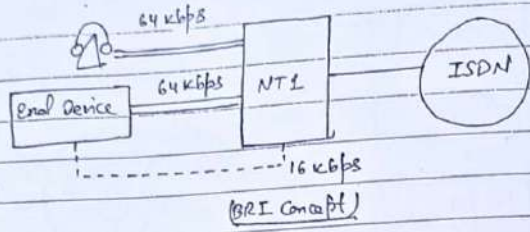 64 kbps
64 kbps
End Device
NT1
ISDN
16 kbps
(BRI Concept)